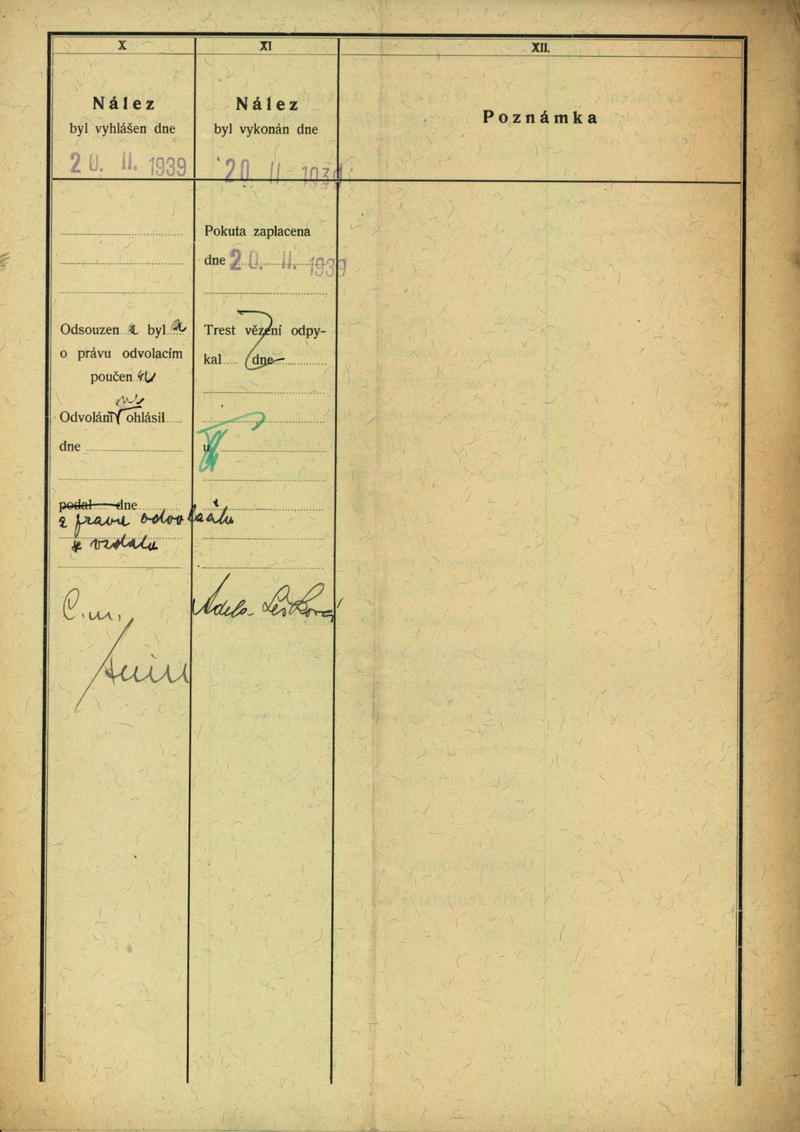 X
Nález
byl vyhlášen dne
20. II. 1939
Odsouzen a byl a
o právu odvolacím
poučen a
Odvolání ohlásil
dne
podal dne
práva
je vzdala.
XI
Nález
byl vykonán dne
20. II. 1939
Pokuta zaplacena
dne 20. II. 1939
Trest vězení odpy-
kal dne
u
Adela
XII.
Poznámka